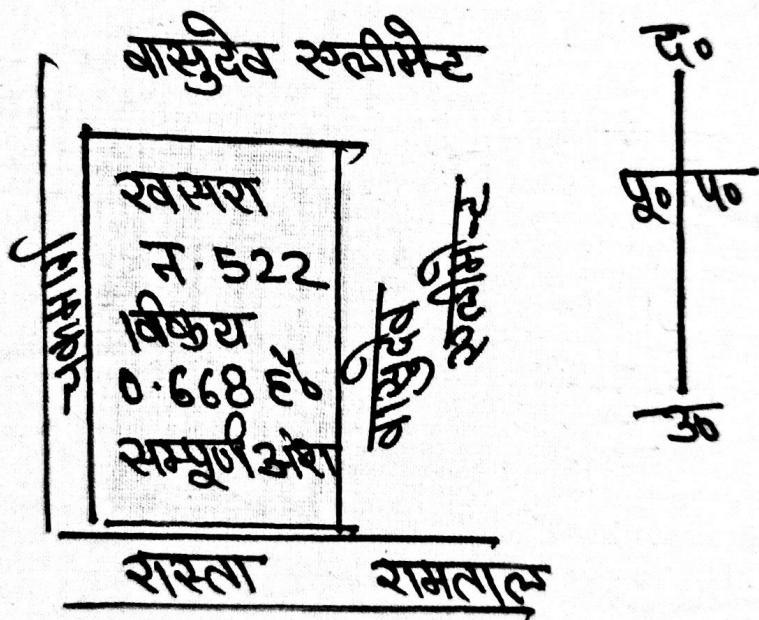 वासुदेव एलीमेन्ट
द०
पू० प०
उ०
चकमार्ग
खसरा
न. 522
विक्रय
0.668 हे०
सम्पूर्ण अंश
वासुदेव
एलीमेन्ट
रास्ता रामताल